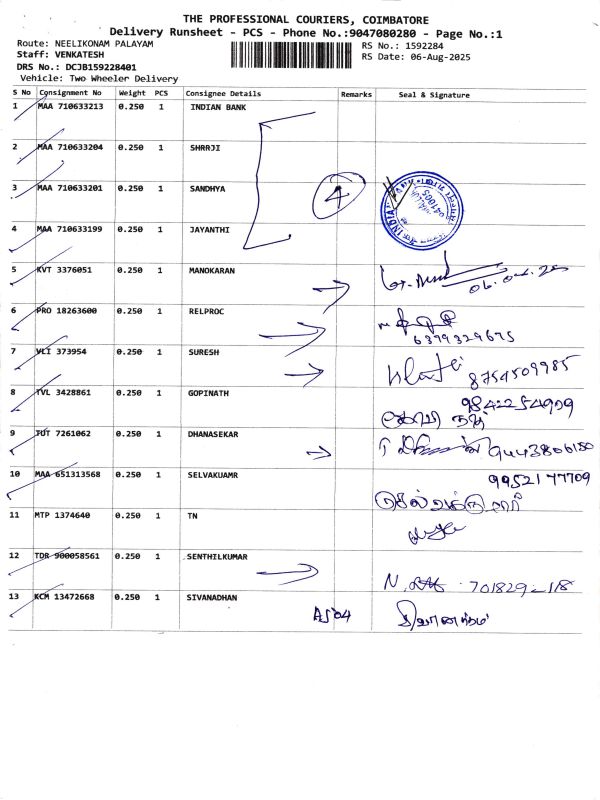 THE PROFESSIONAL COURIERS, COIMBATORE
Delivery Runsheet - PCS - Phone No.:9047080280 - Page No.:1
Route: NEELIKONAM PALAYAM
RS No.: 1592284
Staff: VENKATESH
RS Date: 06-Aug-2025
DRS No.: DCJB159228401
Vehicle: Two Wheeler Delivery
S No Consignment No Weight PCS Consignee Details Remarks Seal & Signature
1 MAA 710633213 0.250 1 INDIAN BANK
2 MAA 710633204 0.250 1 SHRRJI
3 MAA 710633201 0.250 1 SANDHYA
4
4 MAA 710633199 0.250 1 JAYANTHI
INDIAN
641005
5 KVT 3376051 0.250 1 MANOKARAN
6 PRO 18263600 0.250 1 RELPROC
6379329675
7 VLI 373954 0.250 1 SURESH
8754509985
8 TVL 3428861 0.250 1 GOPINATH
9842254909
9 TUT 7261062 0.250 1 DHANASEKAR
9443806150
10 MAA 651313568 0.250 1 SELVAKUAMR
9952177709
11 MTP 1374640 0.250 1 TN
12 TDR 900058561 0.250 1 SENTHILKUMAR
13 KCM 13472668 0.250 1 SIVANADHAN